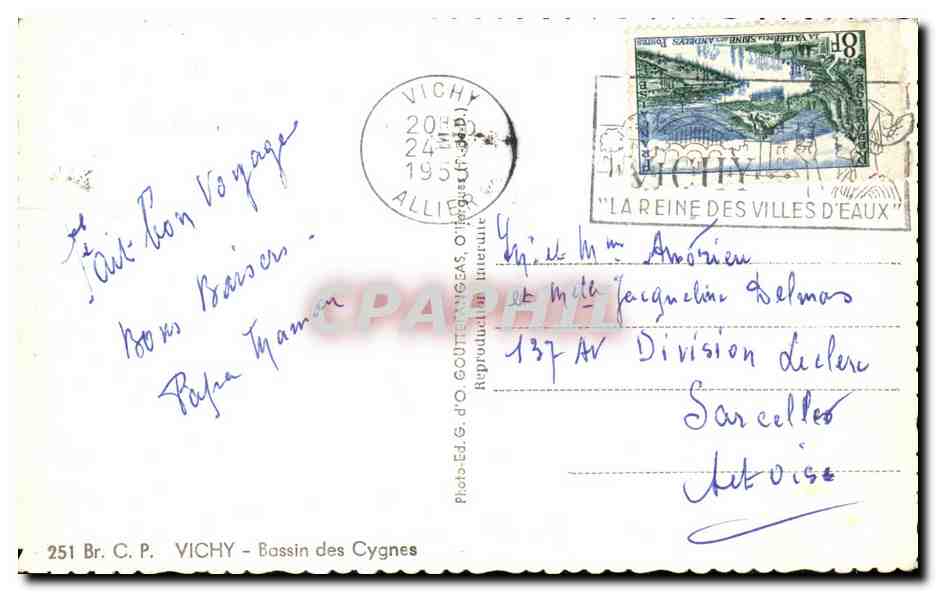 VICHY
20H
24
195
ALLIER
8F
LA VALLÉE DE LA SEINE AUX ANDELYS POSTES
VICHY
"LA REINE DES VILLES D'EAUX"
fait bon Voyage
Bons Baisers -
Papa Maman
Photo-Ed. G. d'O. GOUTTEFANGEAS, Ollergues (P.-de-D.)
Reproduction Interdite
CPAPHIL
et Mme Jacqueline Delmas
137 AV Division Leclerc
Sarcelles
251 Br. C. P. VICHY - Bassin des Cygnes